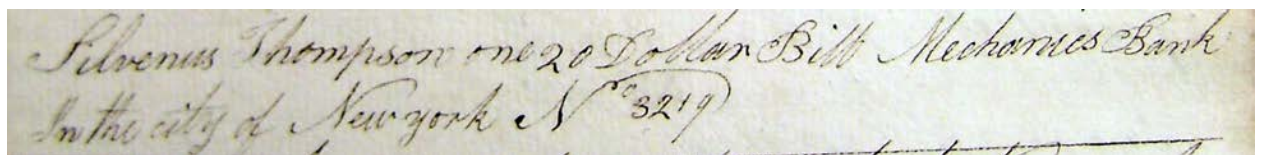 Silvenus Thompson one 20 Dollar Bill Mechanics Bank
In the city of New york No 3219